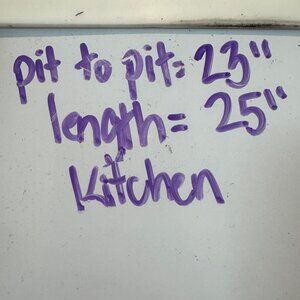 pit to pit: 23"
length = 25"
Kitchen